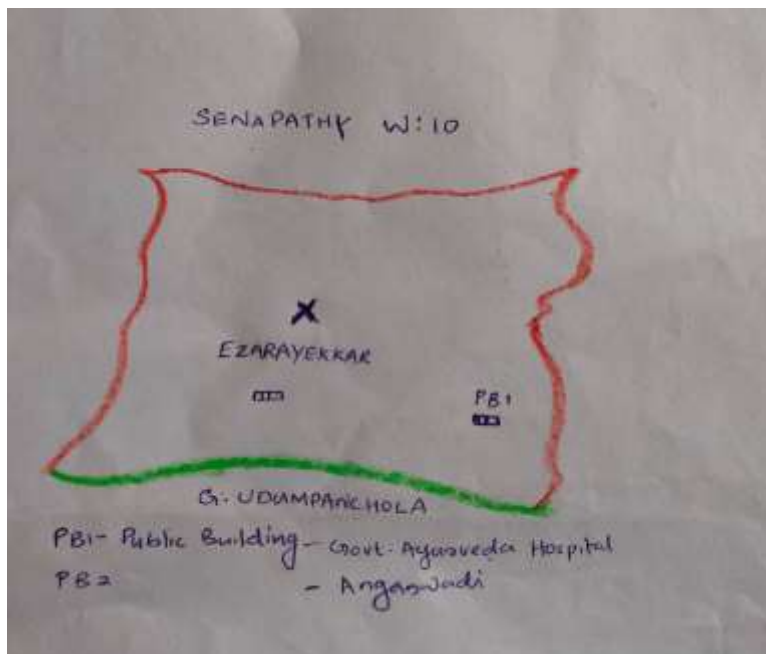 SENAPATHY W:10
EZARAYEKKAR
PB1
G. UDUMPANCHOLA
PB1- Public Building - Govt: Ayurveda Hospital
PB2 - Angawadi